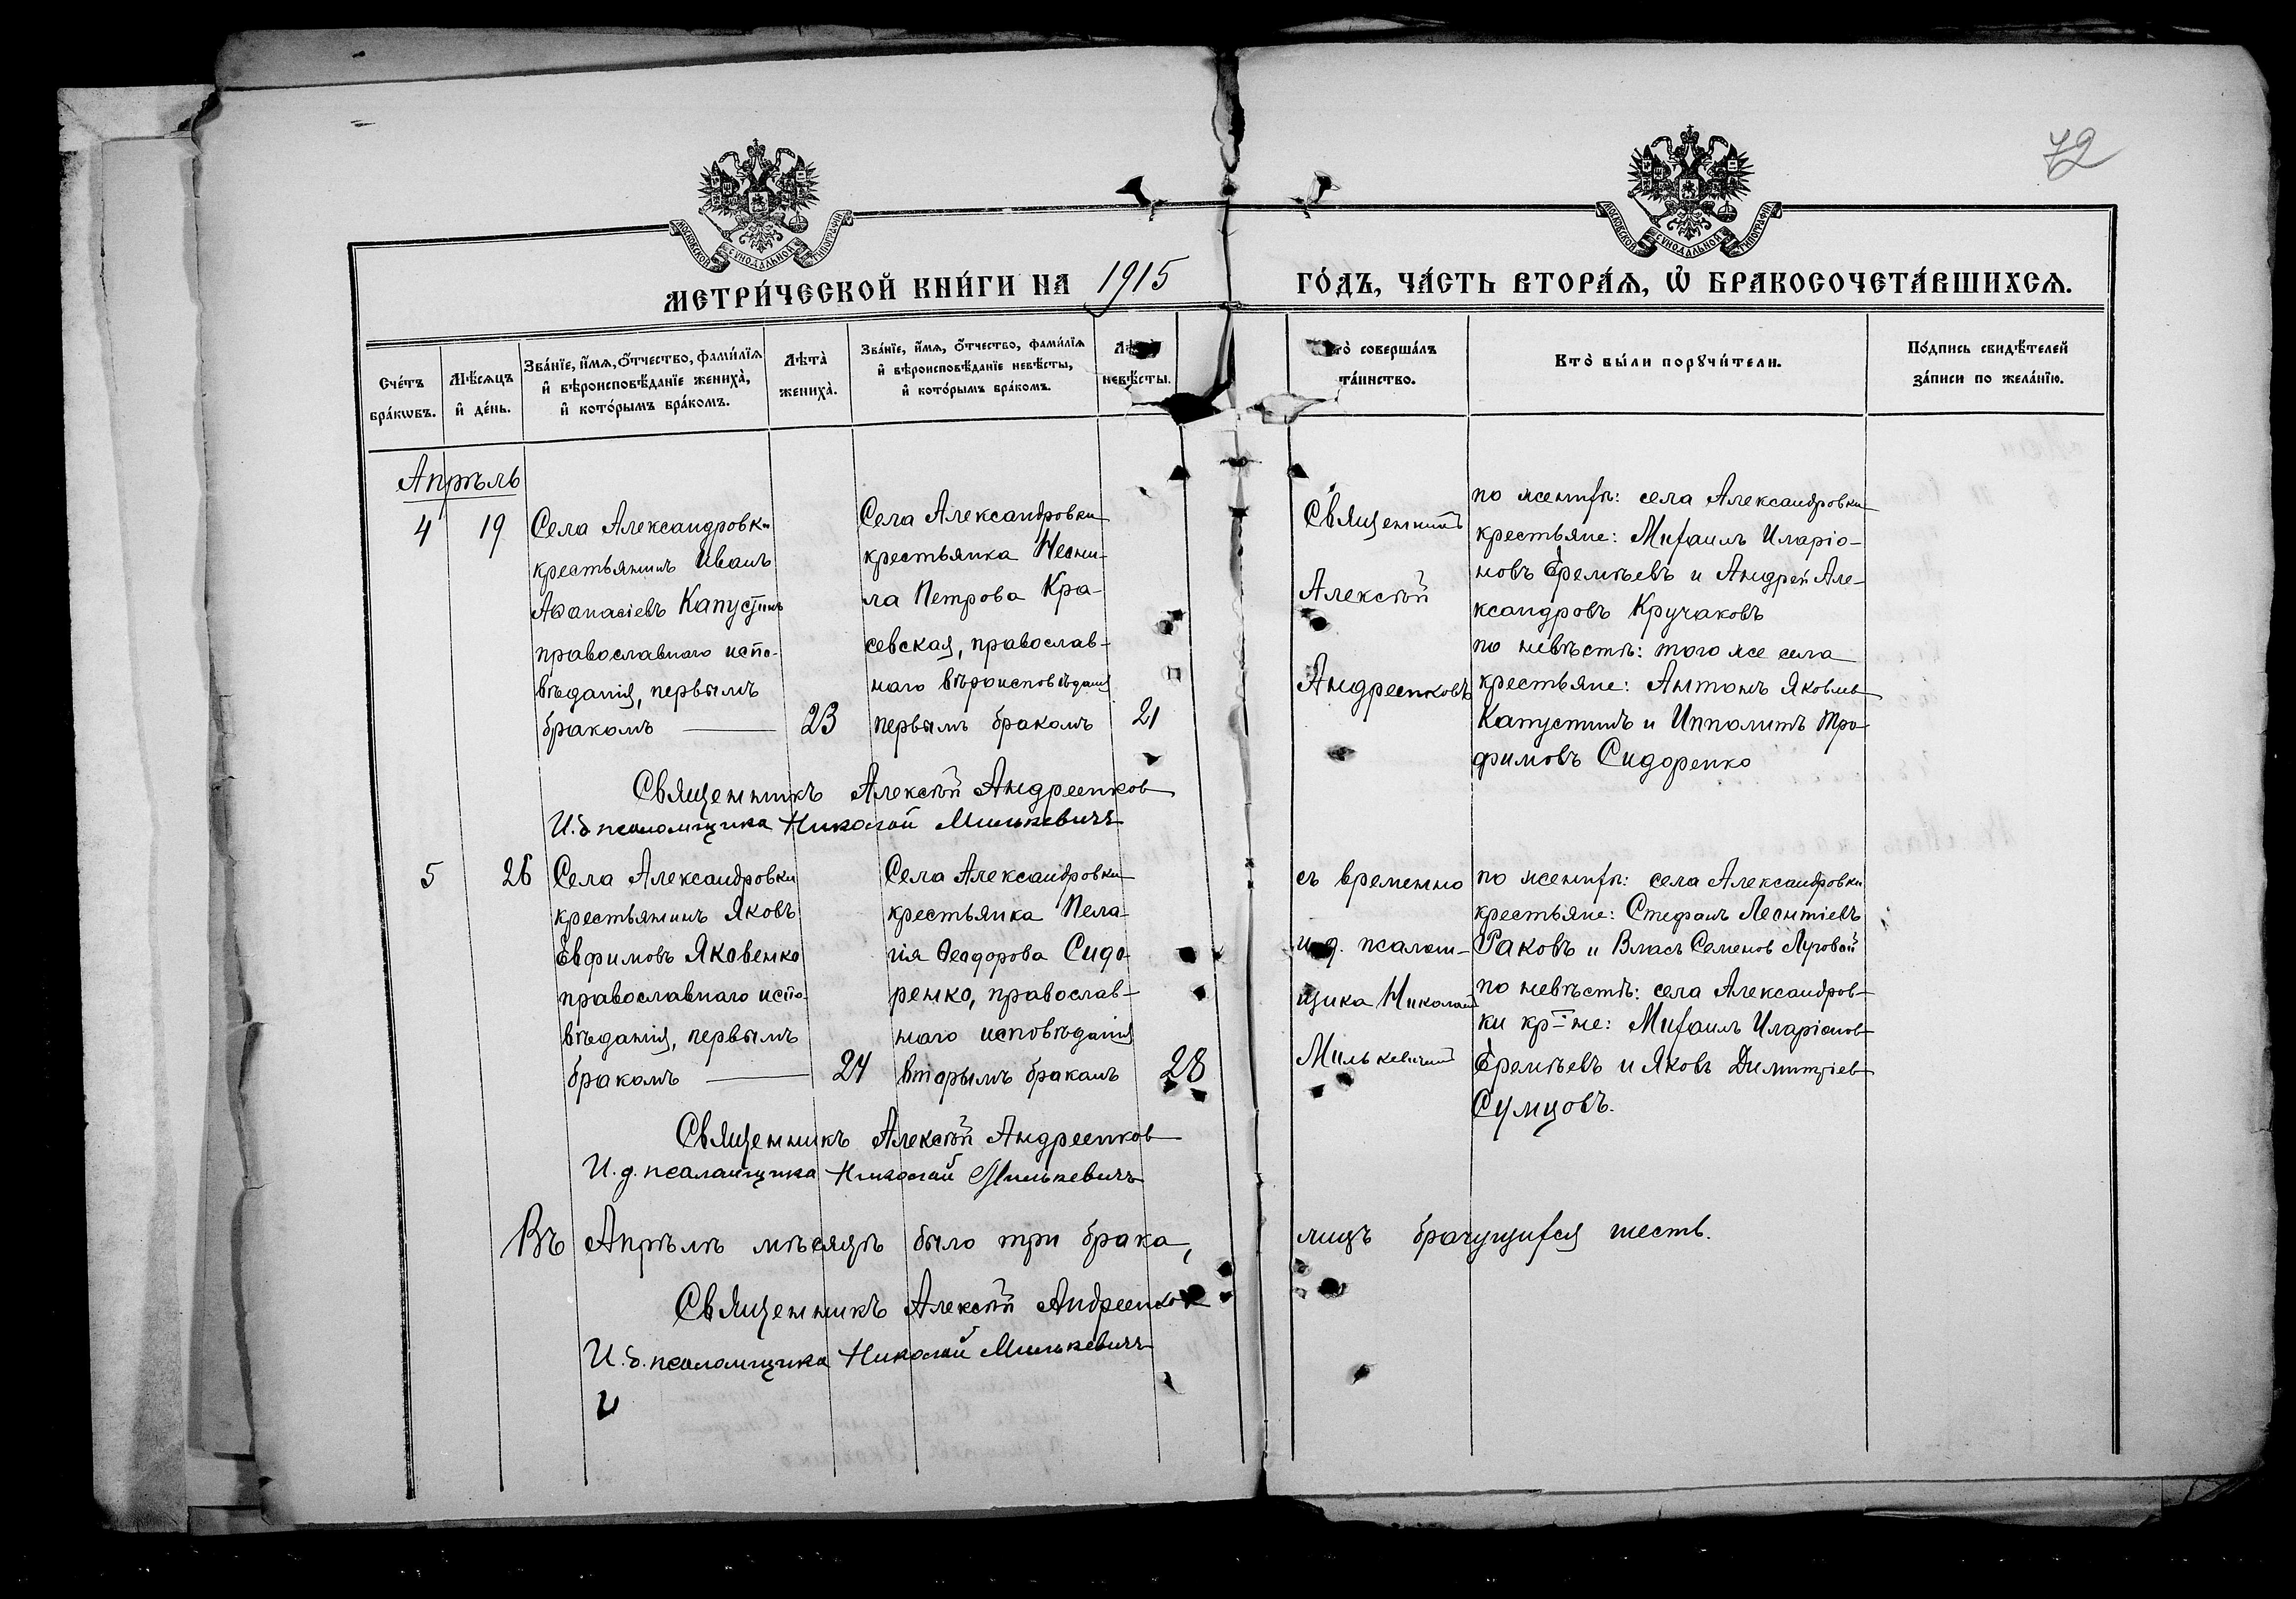 72
МОСКОВСКОЙ СѴНОДАЛЬНОЙ ТИПОГРАФІИ
МОСКОВСКОЙ СѴНОДАЛЬНОЙ ТИПОГРАФІИ
МЕТРИ́ЧЕСКОЙ КНИ́ГИ НА 1915 ГО́ДЪ, ЧА́СТЬ ВТОРА́Ѧ, Ѡ҆ БРАКОСОЧЕТА́ВШИХСѦ.
Сче́тъ
бра́кѡвъ.
Мѣ́сѧцъ
и҆ де́нь.
Зва́нїе, и҆́мѧ, ѻ҆́тчество, фами́лїѧ
и҆ вѣроисповѣ́данїе жениха̀,
и҆ кото́рымъ бра́комъ.
Лѣта̀
жениха̀.
Зва́нїе, и҆́мѧ, ѻ҆́тчество, фами́лїѧ
и҆ вѣроисповѣ́данїе невѣ́сты,
и҆ кото́рымъ бра́комъ.
невѣ́сты.
соверша́лъ
та́инство.
Кто̀ бы́ли порꙋчи́тели.
По́дпись свидѣ́телей
за́писи по жела́нїю.
Апрѣль
4
19
Села Александровки
крестьянинъ Иванъ
Аѳанасіевъ Капустинъ
православнаго испо-
вѣданія, первымъ
бракомъ
23
Села Александровки
крестьянка Неони-
ла Петрова Кра-
севская, православ-
наго вѣроисповѣданія
первымъ бракомъ
21
Священникъ
Алексѣй
Андреенковъ
по женихѣ: села Александровки
крестьяне: Михаилъ Иларіо-
новъ Еремѣевъ и Андрей Але-
ксандровъ Кручаковъ
по невѣстѣ: того же села
крестьяне: Антонъ Яковлев
Капустинъ и Ипполитъ Тро-
фимовъ Сидоренко
Священникъ Алексѣй Андреенков
И.д псаломщика Николай Милькевичъ
5
26
Села Александровки
крестьянинъ Яковъ
Евфимовъ Яковенко
православнаго испо-
вѣданія, первымъ
бракомъ
24
Села Александровки
крестьянка Пела-
гія Ѳеодорова Сидо-
ренко, православ-
наго исповѣданія
вторымъ бракомъ
28
съ временно
и.д. псалом-
щика Николай
по женихѣ: села Александровки
крестьяне: Стефанъ Леонтіевъ
Раковъ и Власъ Семенов Луговой
по невѣстѣ: села Александров-
ки кр-не: Михаилъ Иларіонов
Еремѣевъ и Яковъ Димитріев
Сумцовъ.
Священникъ Алексѣй Андреенков
И.д. псаломщика Николай Милькевичъ
Въ Апрѣлѣ мѣсяцѣ было три брака, лицъ брачущихся шесть.
Священникъ Алексѣй Андреенков
И.д. псаломщика Николай Милькевичъ